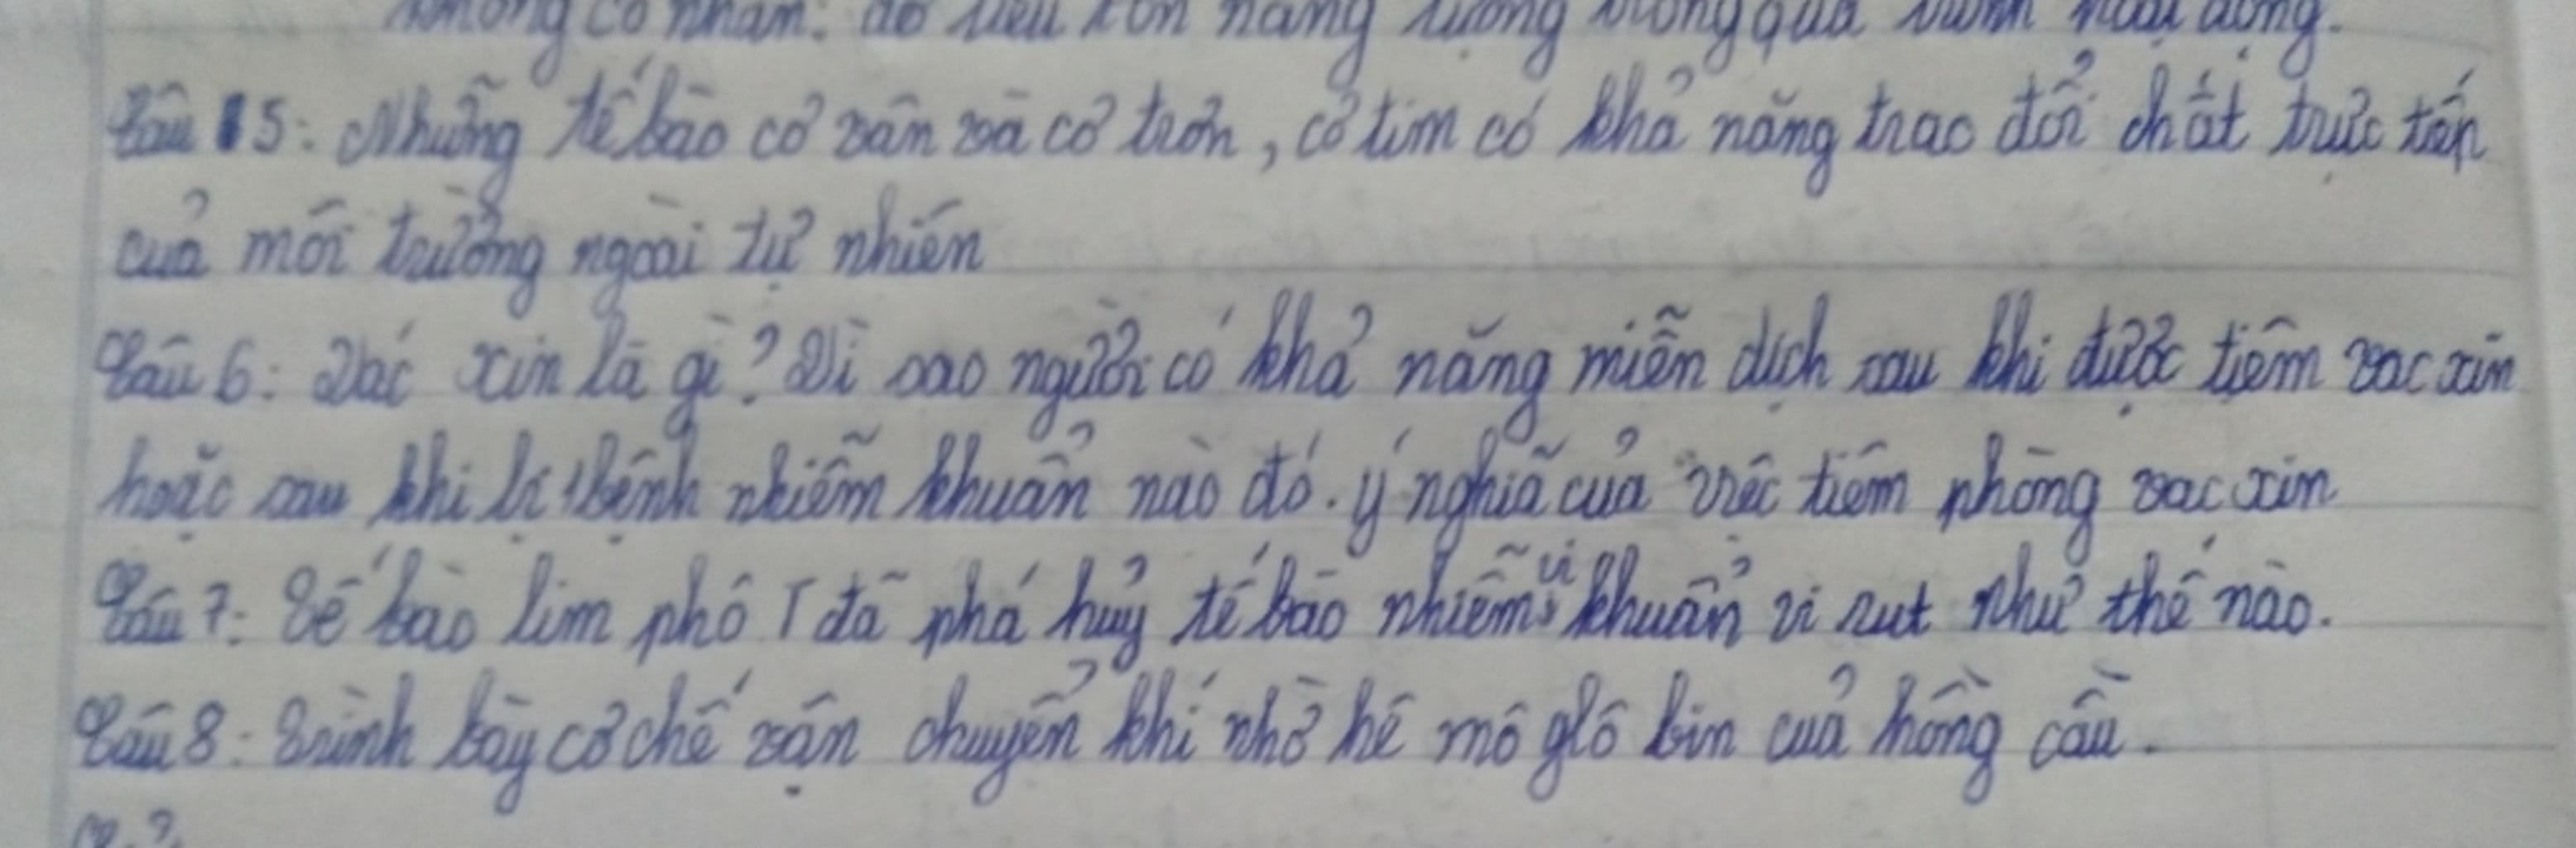 không có nhân: do tiêu tốn năng lượng trong quá trình hoạt động.
Câu 15: Những tế bào cơ vân và cơ trơn, cơ tim có khả năng trao đổi chất trực tiếp
của môi trường ngoài tự nhiên
Câu 6: Vác xin là gì? Vì sao người có khả năng miễn dịch sau khi được tiêm vac xin
hoặc sau khi bị bệnh nhiễm khuẩn nào đó. ý nghĩa của việc tiêm phòng vac xin
Câu 7: Tế bào lim phô T đã phá hủy tế bào nhiễm vi khuẩn vi rut như thế nào.
Câu 8: Trình bày cơ chế vận chuyển khí nhờ hê mô glô bin của hồng cầu.